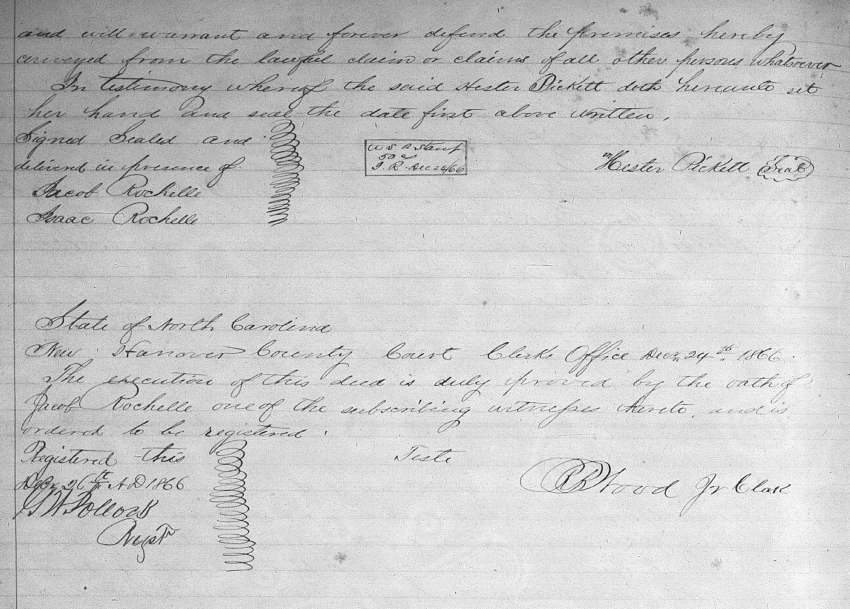 and will warrant and forever defend the premises hereby
conveyed from the lawful claim or claims of all other persons whatever
In testimony whereof the said Hester Pickett doth hereunto set
her hand and seal the date first above written.
Signed Sealed and
delivered in presence of
Jacob Rochelle
Isaac Rochelle
U S R Stamp
J. R. Dec 24/66
Hester Pickett Seal
State of North Carolina
New Hanover County Court Clerks Office Decr 24th 1866.
The execution of this deed is duly proved by the oath of
Jacob Rochelle one of the subscribing witnesses hereto, and is
ordered to be registered.
Registered this
Teste
Decr 26th A D 1866
Wood Jr Clerk
Pollock
Regstr